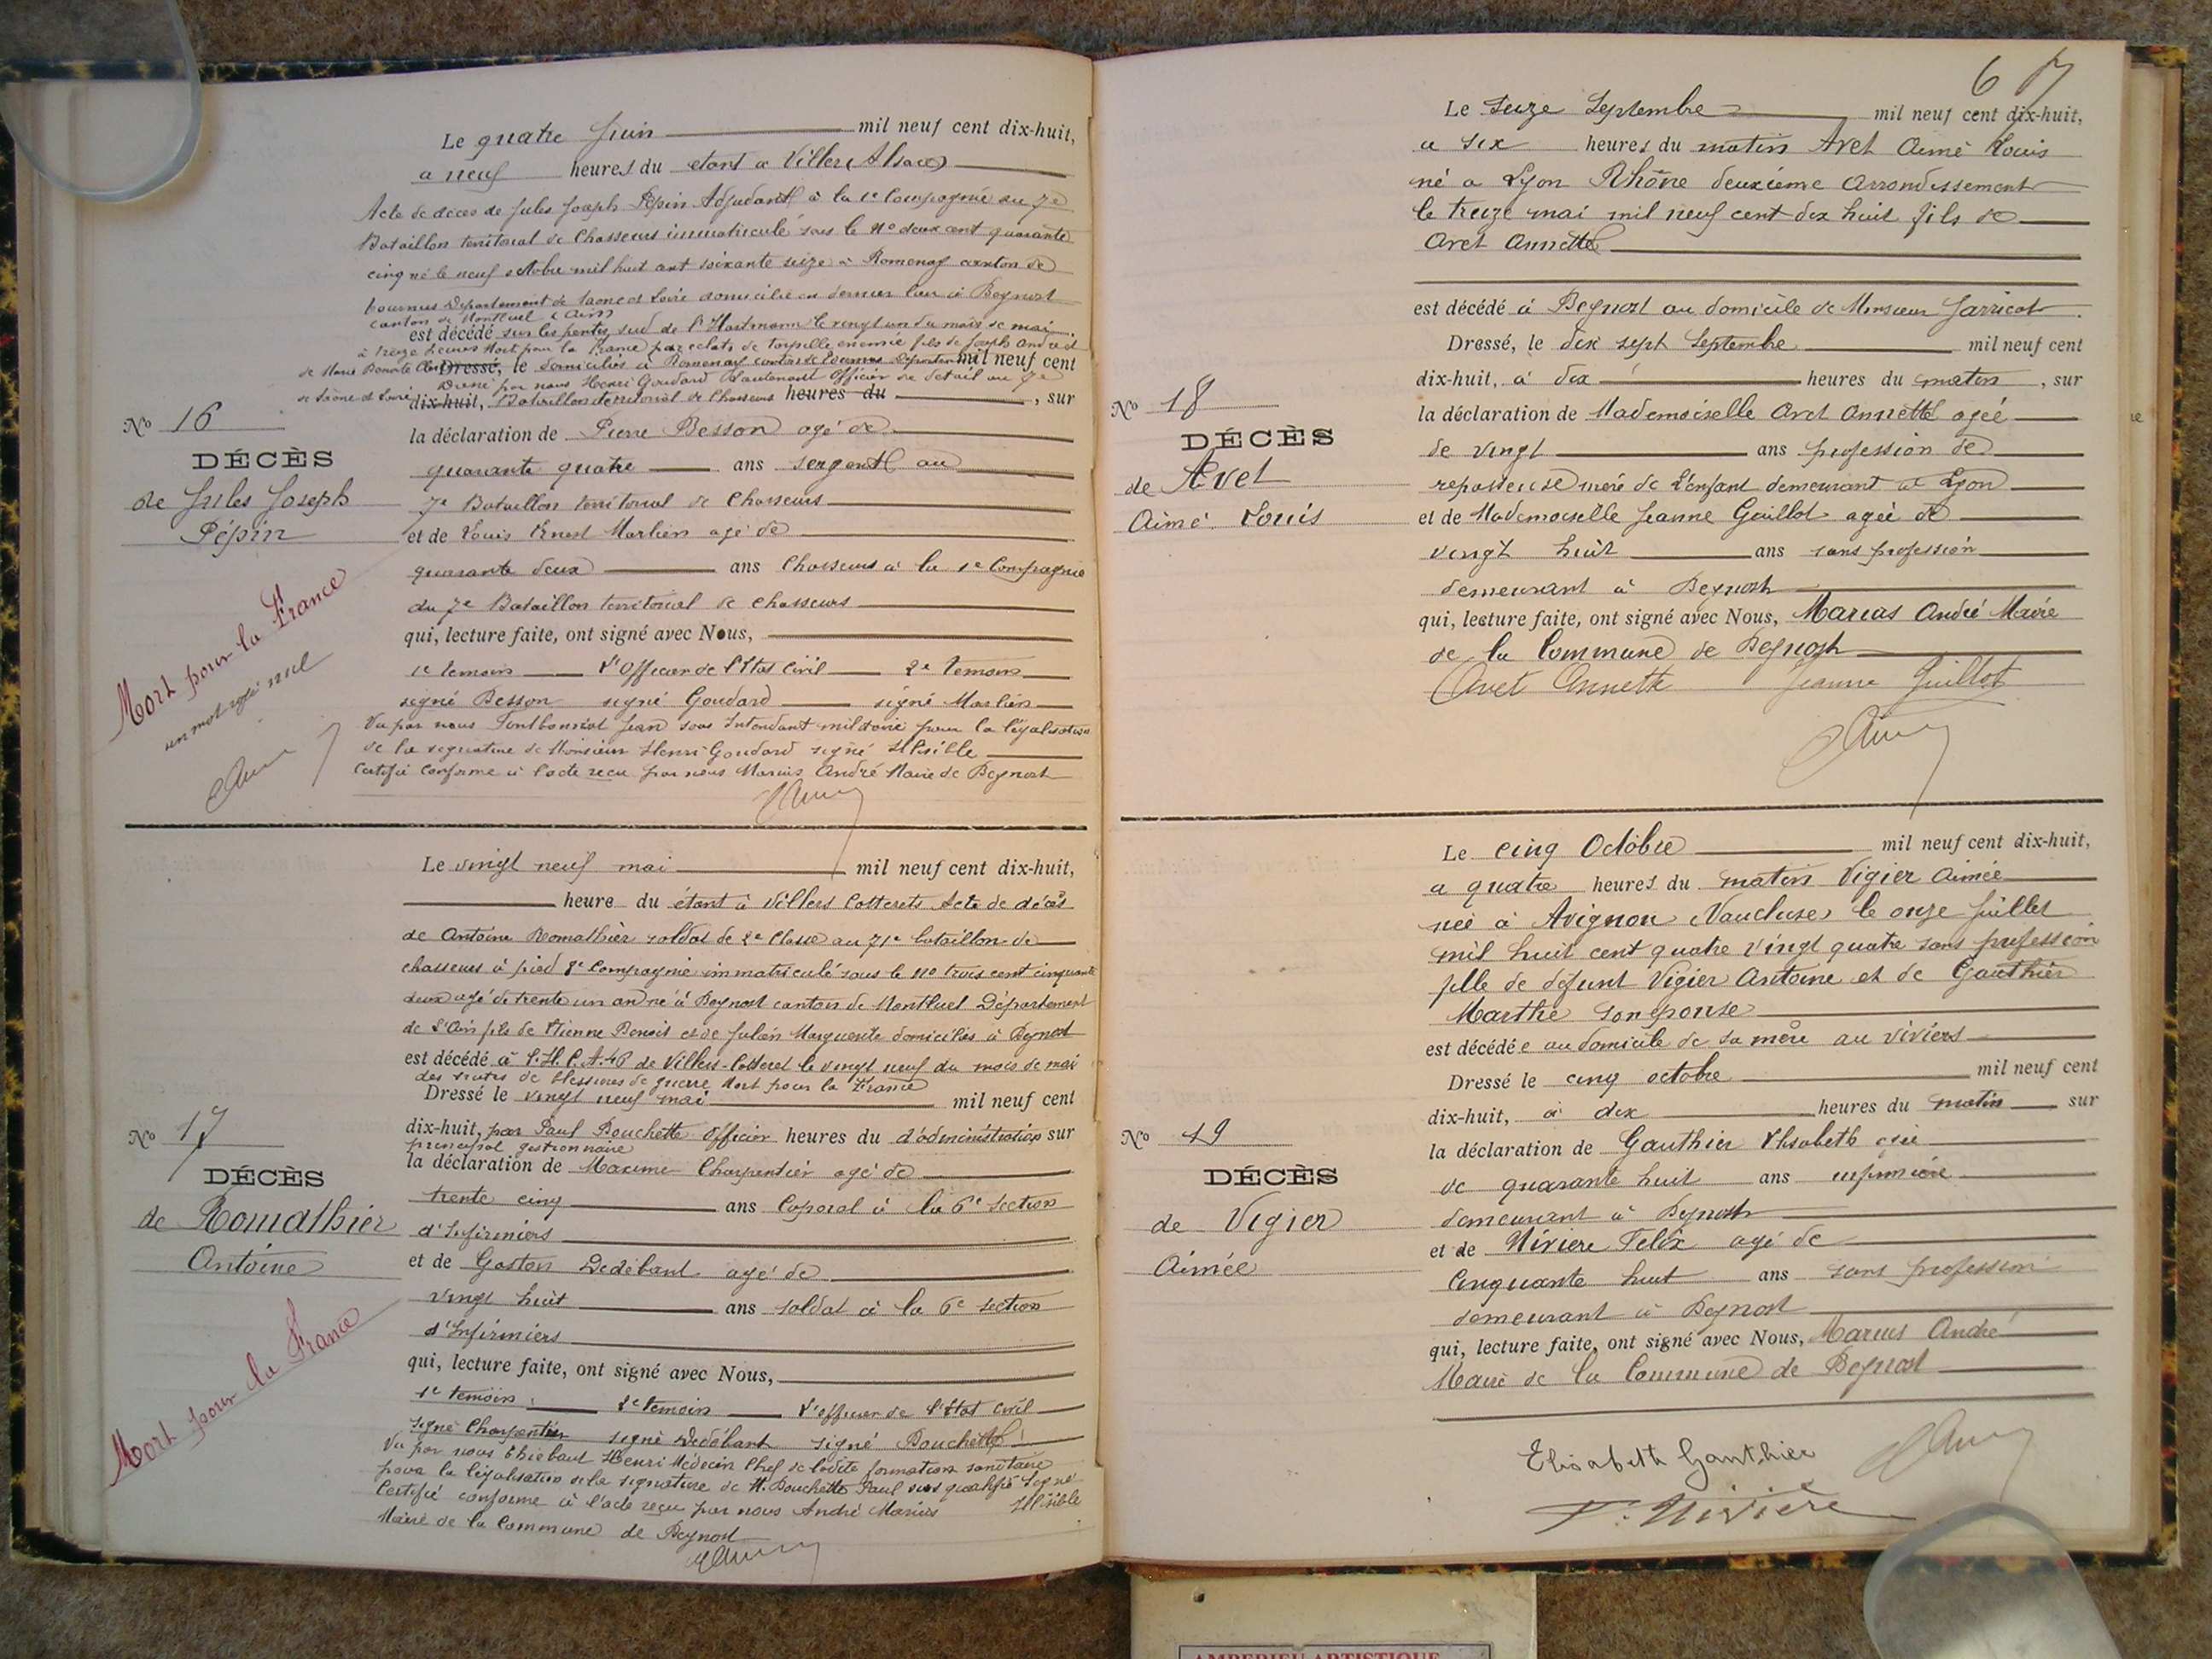 Le quatre Juin mil neuf cent dix-huit,
a neuf heures du etant a Viller (Alsace)
Acte de décès de Jules Joseph Pépin Adjudant à la 1e Compagnie au 7e
Bataillon territorial de Chasseurs immatriculé sous le No deux cent quarante
cinq né le neuf octobre mil huit cent soixante seize à Romenay canton de
Tournus Département de Saone et Loire domicilié en dernier lieu à Beynost
canton de Montluel (Ain)
est décédé sur les pentes sud de l'Hartmann le vingt un du mois de mai
à treize heures Mort pour la France par eclats de torpille ennemie fils de Joseph André et
de Marie Benoite Dressé, le domiciliés à Romenay canton de Tournus Département mil neuf cent
Dressé par nous Henri Goudard Lieutenant Officier de détail au 7e
de Saône et Loire dix-huit, Bataillon territorial de Chasseurs heures du , sur
No 16
DÉCÈS
de Jules Joseph
Pépin
Mort pour la France
un mot rayé nul
la déclaration de Pierre Besson agé de
quarante quatre ans sergent au
7e Bataillon territorial de Chasseurs
et de Louis Ernest Marlien agé de
quarante deux ans Chasseurs à la 1e Compagnie
du 7e Bataillon territorial de chasseurs
qui, lecture faite, ont signé avec Nous,
1e temoin L'Officier de l'Etat Civil 2e temoin
signé Besson signé Goudard signé Marlien
Vu par nous Jean sous Intendant militaire pour la légalisation
de la signature de Monsieur Henri Goudard signé Illisible
Certifié conforme à l'acte recu par nous Marius André Maire de Beynost
Le vingt neuf mai mil neuf cent dix-huit,
heure du étant à Villers Cotterets Acte de décès
de Antoine Romathier soldat de 2e Classe au 71e bataillon de
chasseurs à pied 8e Compagnie immatriculé sous le No trois cent cinquante
deux agé de trente un an né à Beynost canton de Montluel Département
de l'Ain fils de Etienne Benoit et de Julien Marguerite domiciliés à Beynost
est décédé à l'H. C. A. 46 de Villers-Cotteret le vingt neuf du mois de mai
des suites de blessures de guerre Mort pour la France
Dressé le vingt neuf mai mil neuf cent
dix-huit, par Paul Bouchette Officier heures du d'administration sur
principal gestionnaire
No 17
DÉCÈS
de Romathier
Antoine
Mort pour la France
la déclaration de Maxime Charpentier agé de
trente cinq ans Caporal à la 6e section
d'Infirmiers
et de Gaston Dedébant agé de
vingt huit ans soldat à la 6e section
d'Infirmiers
qui, lecture faite, ont signé avec Nous,
1e temoin 2e temoin L'officier de l'Etat Civil
signé Charpentier signé Dedébant signé Bouchette
Vu par nous Thiebaut Henri Médecin Chef de ladite formation sanitaire
pour la légalisation de la signature de M. Bouchette Paul sus qualifié signé
Illisible
Certifié conforme à l'acte reçu par nous André Marius
Maire de la Commune de Beynost
6 7
Le Seize Septembre mil neuf cent dix-huit,
a six heures du matin Avet Aimé Louis
né a Lyon Rhône deuxième Arrondissement
le treize mai mil neuf cent dix huit fils de
Avet Annette
est décédé à Beynost au domicile de Monsieur Jarricot
Dressé, le dix sept Septembre mil neuf cent
dix-huit, à dix heures du matin, sur
No 18
DÉCÈS
de Avet
Aimé Louis
la déclaration de Mademoiselle Avet Annette agée
de vingt ans profession de
repasseuse mère de l'enfant demeurant a Lyon
et de Mademoiselle Jeanne Guillot agée de
vingt huit ans sans profession
demeurant à Beynost
qui, lecture faite, ont signé avec Nous, Marius André Maire
de la Commune de Beynost
Avet Annette Jeanne Guillot
Le cinq Octobre mil neuf cent dix-huit,
a quatre heures du matin Vigier Aimée
née à Avignon (Vaucluse) le onze Juillet
mil huit cent quatre vingt quatre sans profession
fille de défunt Vigier Antoine et de Gauthier
Marthe son épouse
est décédée au domicile de sa mère au viviers
Dressé le cinq octobre mil neuf cent
dix-huit, à dix heures du matin sur
No 19
DÉCÈS
de Vigier
Aimée
la déclaration de Gauthier Elisabeth agée
de quarante huit ans infirmière
demeurant à Beynost
et de Nivière Félix agé de
Cinquante huit ans sans profession
demeurant à Beynost
qui, lecture faite, ont signé avec Nous, Marius André
Maire de la Commune de Beynost
Elisabeth Gauthier
F. Nivière
AMBERIEU ARTISTIQUE